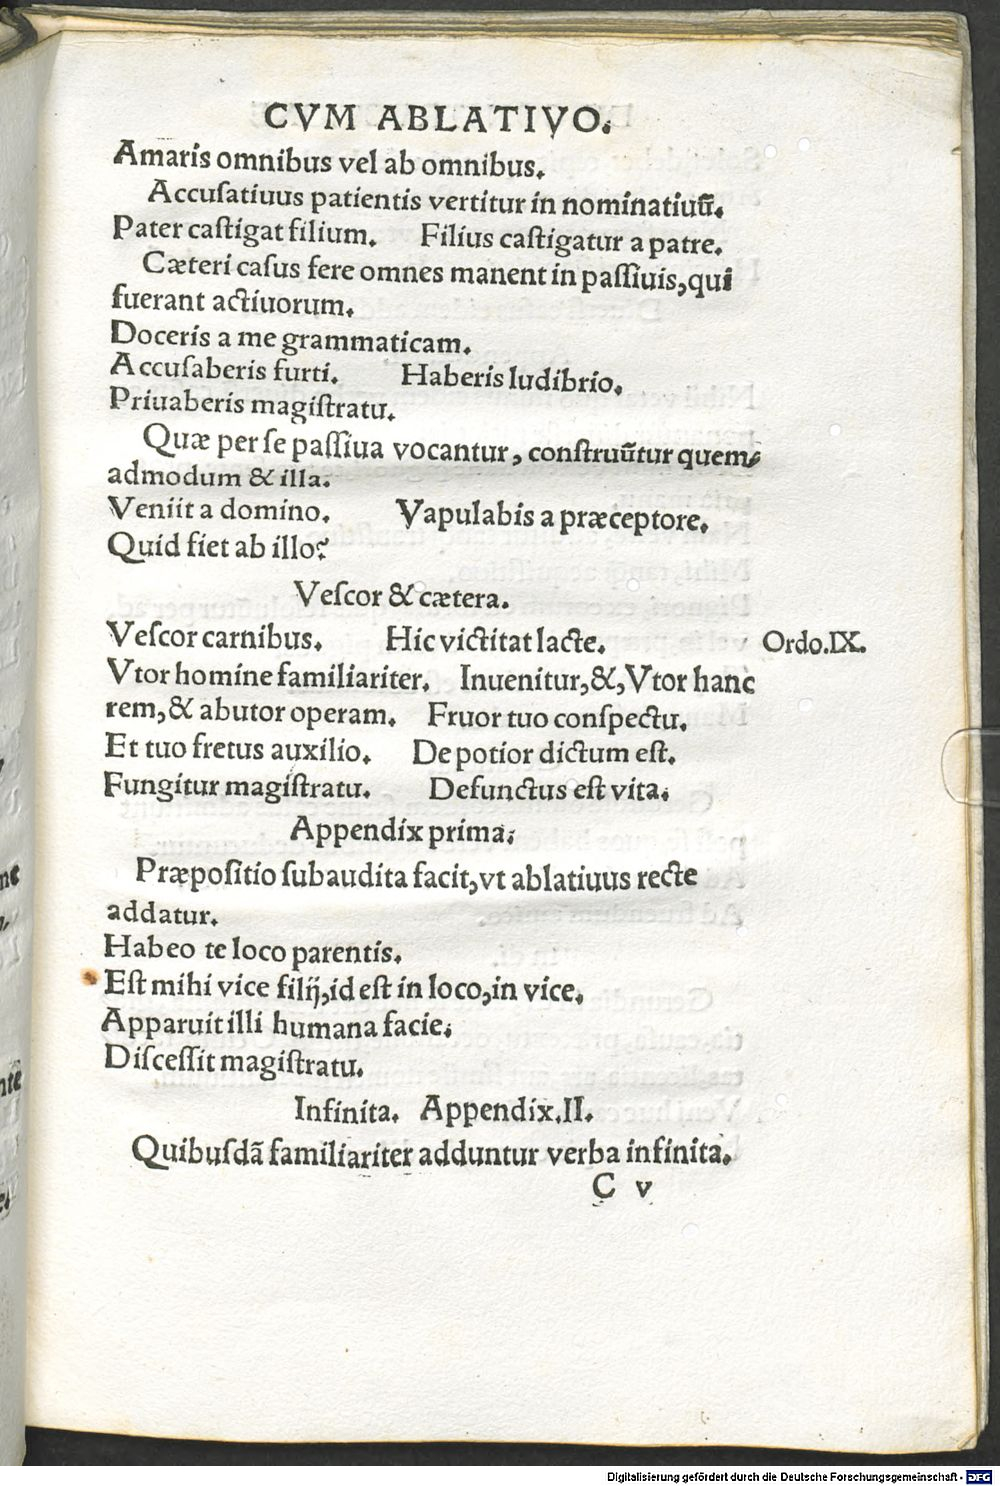 CVM ABLATIVO.
Amaris omnibus vel ab omnibus.
Accuſatiuus patientis vertitur in nominatiuũ.
Pater caſtigat filium. Filius caſtigatur a patre.
Cæteri caſus fere omnes manent in paſſiuis, qui
fuerant actiuorum.
Doceris a me grammaticam.
Accuſaberis furti. Haberis ludibrio.
Priuaberis magiſtratu.
Quæ per ſe paſſiua vocantur, conſtruũtur quem⸗
admodum & illa.
Veniit a domino. Vapulabis a præceptore.
Quid fiet ab illo?
Veſcor & cætera.
Veſcor carnibus. Hic victitat lacte. Ordo.IX.
Vtor homine familiariter. Inuenitur,&,Vtor hanc
rem,& abutor operam. Fruor tuo conſpectu.
Et tuo fretus auxilio. De potior dictum eſt.
Fungitur magiſtratu. Defunctus eſt vita.
Appendix prima.
Præpoſitio ſubaudita facit, vt ablatiuus recte
addatur.
Habeo te loco parentis.
Eſt mihi vice filij, id eſt in loco, in vice.
Apparuit illi humana facie.
Diſceſſit magiſtratu.
Infinita. Appendix.II.
Quibuſdã familiariter adduntur verba infinita.
C v
Digitalisierung gefördert durch die Deutsche Forschungsgemeinschaft - DFG